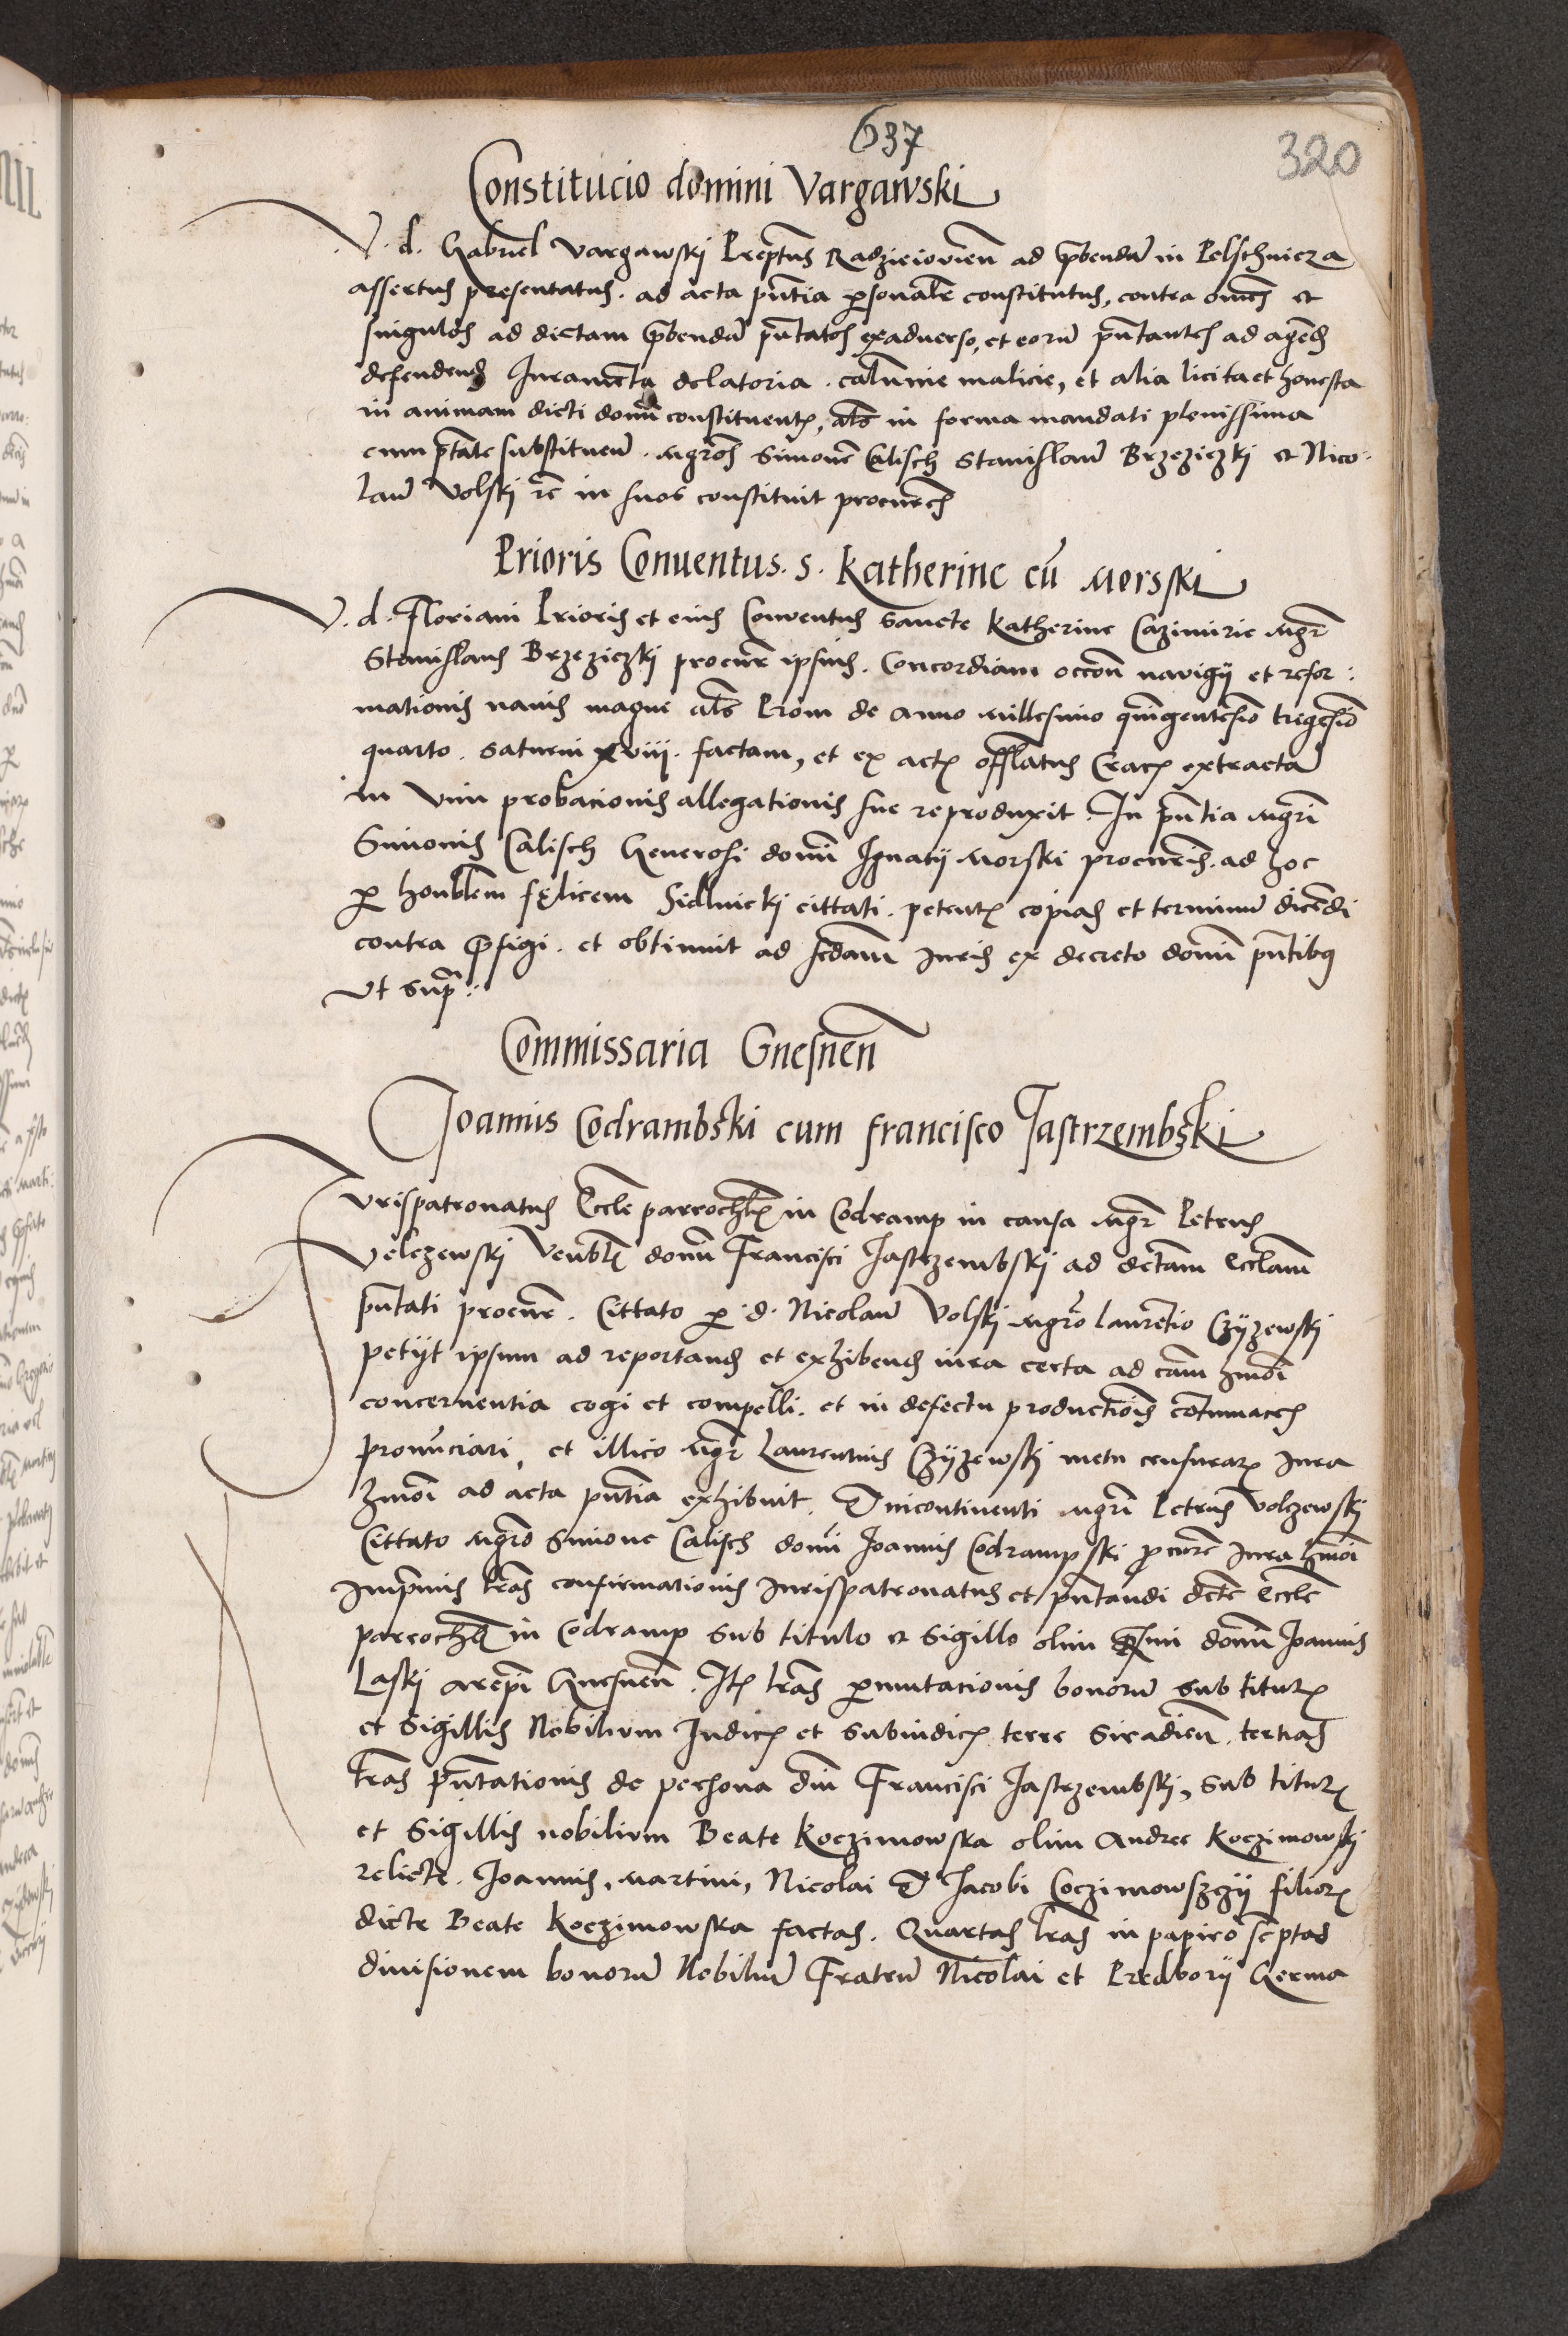 637
320
Constitucio domini Vargawski
V. d. Gabriel Vargawskj Preptus Radzieiovien ad prbendam in Pelschnicza
assertus presentatus. ad acta pntia psonalr constitutus, contra omnes et
singulos ad dictam prbendam pntatos exadverso, et eorum pntantes ad agend
defendend Iuramenta delatoria. calumnie malicie, et alia licita et honesta
in animam dicti domi constituentis, als in forma mandati plenissima
cum ptate substituend. Mgros Simone Calisch Stanislaum Brzeziczkj et Nico:
laum Volskj rc in suos constituit procures
Prioris Conuentus. S. Katherine cu Morski
V. d. Floriani Prioris et eius Conventus Sancte Katherine Cazimirie Mgr
Stanislaus Brzeziczkj procur ipsius. Concordiam occone navigij et refor:
mationis navis magne als Prom de Anno Millesimo quingentesimo tregesimo
quarto. Saturni xviii. factam, et ex actis offlatus Crac extracta
in Vim probacionis allegationis sue reproduxit. In pntia Mgri
Simonis Calisch Generosi domi Ignatij Morski procuris. ad hoc
p honblem felicem Sidlnickj cittati. petentis copias et terminum dicendi
contra prfigi. et obtinuit ad scdam Iuris ex decreto domi pntibus
Vt supr:
Commissaria Gnesnen
Joannis Codrambski cum francisco Jastrzembski
Jvrispatronatus Eccle parrochlis in Codramp in causa Mgr Petrus
Velczewskj Venblis domi Francisci Jastrzembskj ad dctam Ecclam
pntati procur. Cittato p. d. Nicolaum Volskj Mgro Laurentio Czyzewskj
petyt ipsum ad reportand et exhibend iura certa ad cam hmoi
concernentia cogi et compelli. et in defectu productionis contumaces
pronunciari, et illico Mgr Laurentius Czyzewskj metu censurar Iura
hmoi ad acta pntia exhibuit. Et incontinenti Mgri Petrus Volczewskj
Cittato Mgro Simone Calisch domi Joannis Codrampski procure Iura hmoi
Imprimis lras confirmationis Iurispatronatus et pntandi dcte Eccle
parrochlis in Codramp sub titulo et Sigillo olim domi Joannis
Laskj Arepi Gnesnen. Itē lras pmutacionis bonorum sub titulis
et Sigillis Nobilium Iudicis et Subiudicis terre Siradien. tertias
lras pntationis de persona dni Francisci Jastrzembskj, sub titulis
et Sigillis nobilium Beate Koczimowska olim Andree Koczimowskj
relicte. Joannis, Martini, Nicolai et Jacobi Coczimowszczij filior
dicte Beate Koczimowska factas. Quartas lras in papiro scptas
divisionem bonorum Nobilium Fratrum Nicolai et Predborij Germa